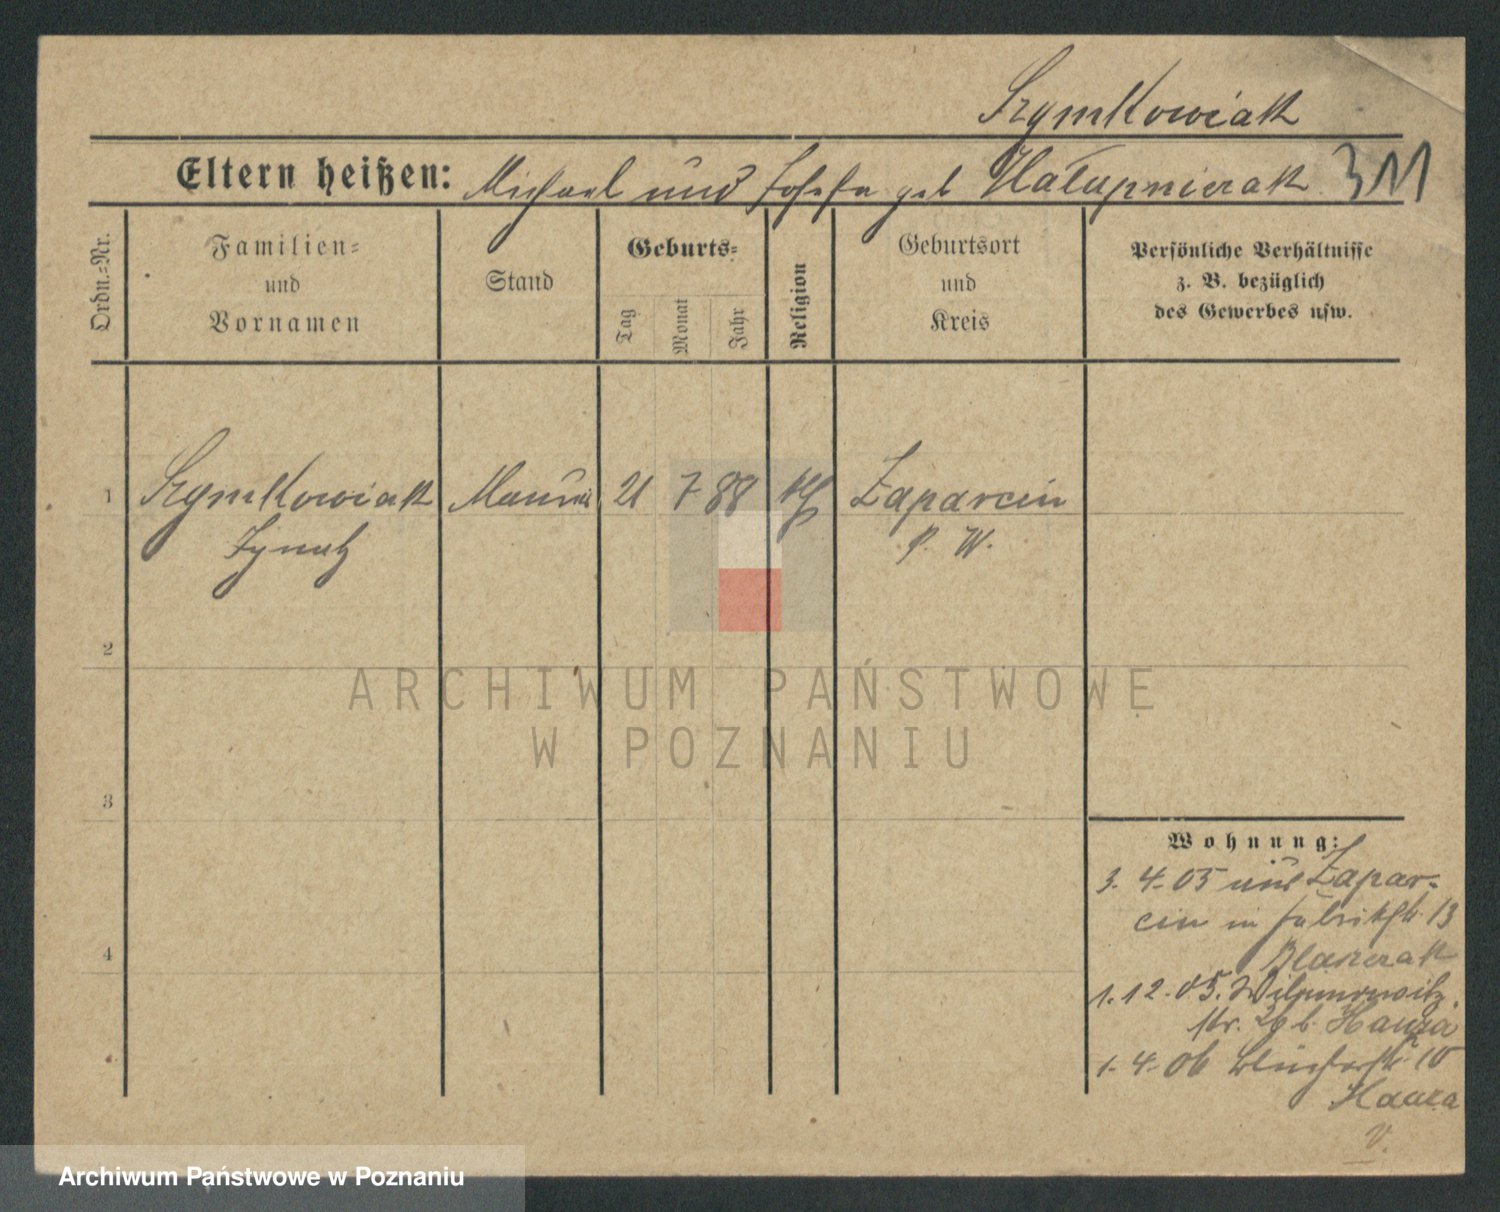 Szymkowiak
Eltern heißen: Michael und Josefa geb Hałupniczak 311
Ordn.-Nr.
Familien-
und
Vornamen
Stand
Geburts-
Tag
Monat
Jahr
Religion
Geburtsort
und
Kreis
Persönliche Verhältnisse
z. B. bezüglich
des Gewerbes usw.
1 Szymkowiak 21 7 88 kth Zaparcin
Ignatz P. W.
2
ARCHIWUM PAŃSTWOWE
W POZNANIU
3
Wohnung:
3. 4. 05 aus Zapar-
cin in Fabrikstr. 13
4
1. 12. 05.
str. 29 b. Hauza
1. 4. 06 Blücherstr. 10
Hauza
V.
Archiwum Państwowe w Poznaniu